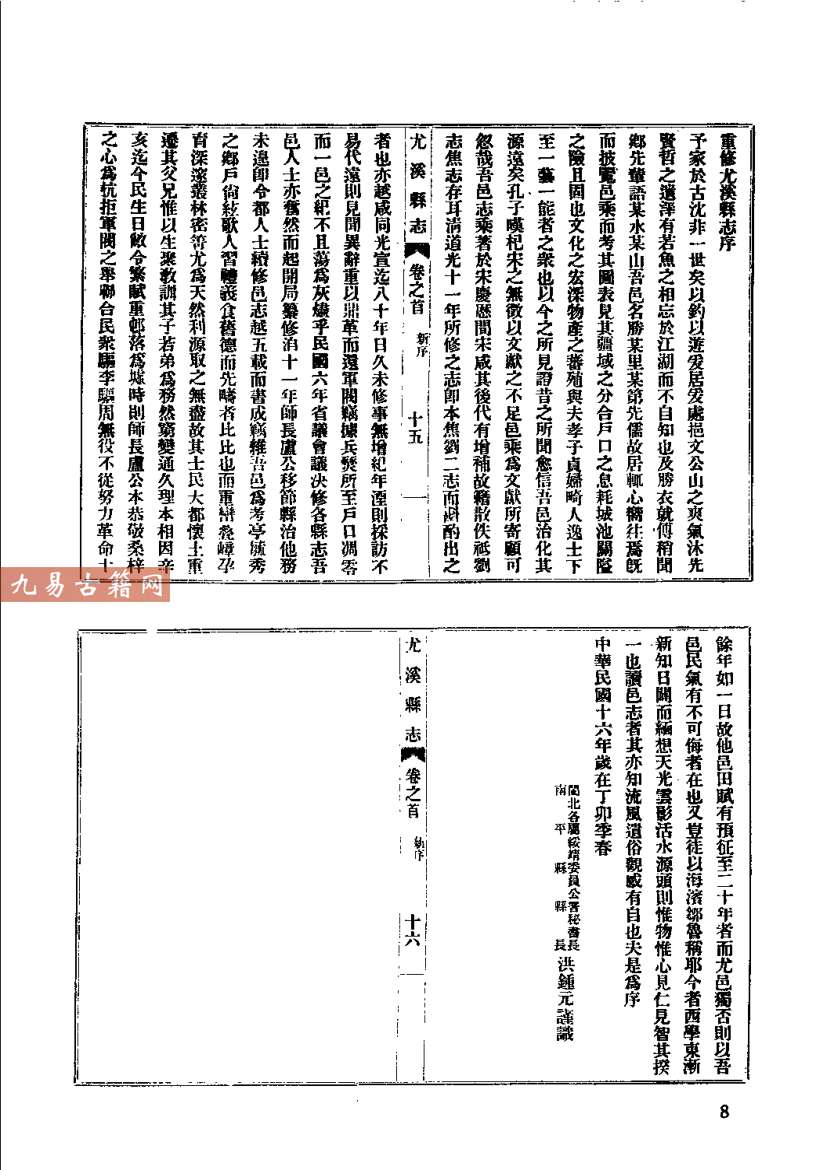 重修尤溪縣志序
予家於古沈非一世矣以釣以遊爰居爰處挹文公山之爽氣沐先
賢哲之遺澤有若魚之相忘於江湖而不自知也及勝衣就傅稍聞
鄉先輩語某水某山吾邑名勝某里某第先儒故居輒心嚮往焉旣
而披覽邑乘而考其圖表見其疆域之分合戶口之息耗城池關隘
之險且固也文化之宏深物產之蕃殖與夫孝子貞婦畸人逸士下
至一藝一能者之衆也以今之所見證昔之所聞愈信吾邑治化其
源遠矣孔子嘆杞宋之無徵以文獻之不足邑乘爲文獻所寄顧可
忽哉吾邑志乘著於宋慶歷間宋咸其後代有增補故籍散佚祇劉
志焦志存耳清道光十一年所修之志卽本焦劉二志而斟酌出之
尤溪縣志 卷之首 新序 十五
者也亦越咸同光宣迄八十年日久未修事無增紀年湮則採訪不
易代遠則見聞異辭重以鼎革而還軍閥竊據兵燹所至戶口凋零
而一邑之紀不且蕩爲灰燼乎民國六年省議會議決修各縣志吾
邑人士亦奮然而起開局纂修洎十一年師長盧公移節縣治他務
未遑卽令都人士續修邑志越五載而書成竊維吾邑爲考亭毓秀
之鄉戶尙絃歌人習禮義食舊德而先疇者比比也而重巒叠嶂孕
育深邃叢林密箐尤爲天然利源取之無盡故其士民大都懷土重
遷其父兄惟以生聚敎訓其子若弟爲務然窮變通久理本相因辛
亥迄今民生日敝令繁賦重邨落爲墟時則師長盧公本恭敬桑梓
之心爲抗拒軍閥之舉聯合民衆驅李驅周無役不從努力革命十
九易古籍网
餘年如一日故他邑田賦有預征至二十年者而尤邑獨否則以吾
邑民氣有不可侮者在也又豈徒以海濱鄒魯稱耶今者西學東漸
新知日闢而緬想天光雲影活水源頭則惟物惟心見仁見智其揆
一也讀邑志者其亦知流風遺俗觀感有自也夫是爲序
中華民國十六年歲在丁卯季春
閩北各屬綏靖委員公署秘書長
南平縣縣長 洪鍾元謹識
尤溪縣志 卷之首 新序 十六
8